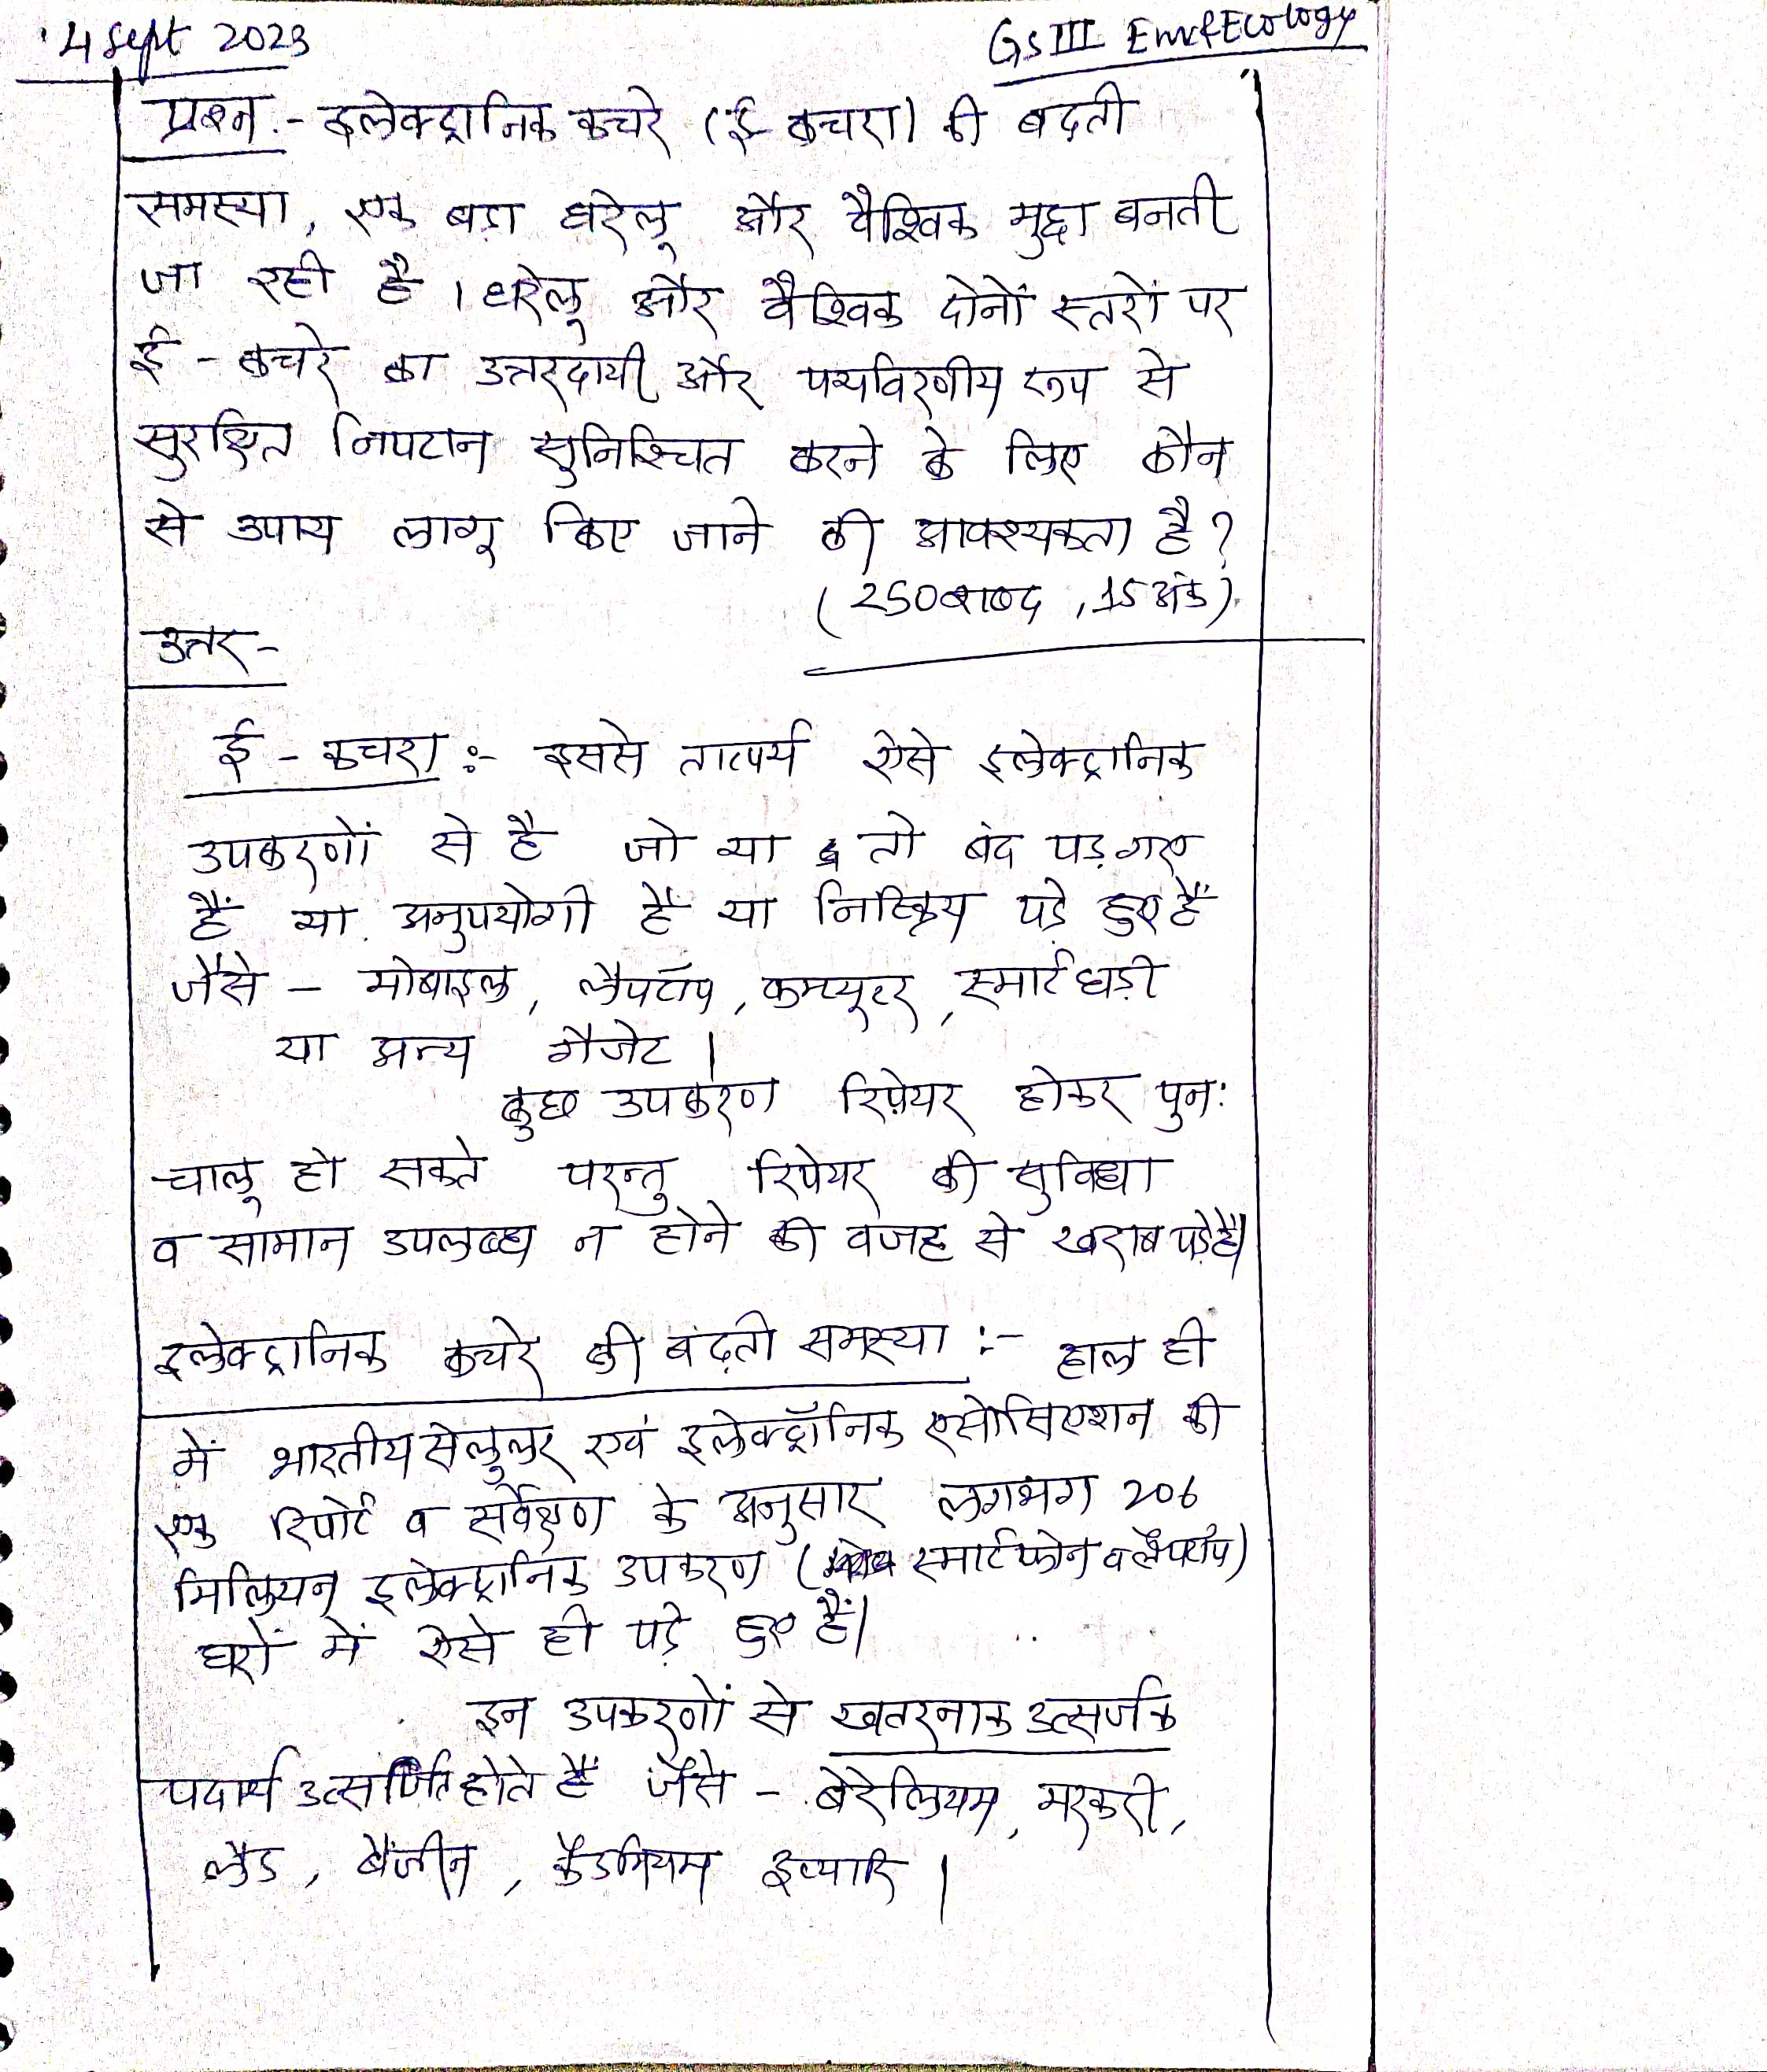 4 Sept 2023
GS III Env&Ecology
प्रश्न.- इलेक्ट्रानिक कचरे (ई-कचरा) की बढ़ती
समस्या, एक बड़ा घरेलू और वैश्विक मुद्दा बनती
जा रही है। घरेलू और वैश्विक दोनों स्तरों पर
ई-कचरे का उत्तरदायी और पर्यावरणीय रूप से
सुरक्षित निपटान सुनिश्चित करने के लिए कौन
से उपाय लागू किए जाने की आवश्यकता है?
(250 शब्द, 15 अंक)
उत्तर-
ई-कचरा:- इससे तात्पर्य ऐसे इलेक्ट्रानिक
उपकरणों से है जो या तो बंद पड़ गए
हैं या अनुपयोगी हैं या निष्क्रिय पड़े हुए हैं
जैसे - मोबाइल, लैपटॉप, कम्प्यूटर, स्मार्ट घड़ी
या अन्य गैजेट।
कुछ उपकरण रिपेयर होकर पुन:
चालू हो सकते परन्तु रिपेयर की सुविधा
व सामान उपलब्ध न होने की वजह से खराब पड़े हैं।
इलेक्ट्रानिक कचरे की बढ़ती समस्या :- हाल ही
में भारतीय सेलुलर एवं इलेक्ट्रॉनिक एसोसिएशन की
एक रिपोर्ट व सर्वेक्षण के अनुसार लगभग 206
मिलियन इलेक्ट्रानिक उपकरण (स्मार्टफोन व लैपटॉप)
घरों में ऐसे ही पड़े हुए हैं।
इन उपकरणों से खतरनाक उत्सर्जक
पदार्थ उत्सर्जित होते हैं जैसे - बेरेलियम, मरकरी,
लैड, बैंजीन, कैडमियम इत्यादि।